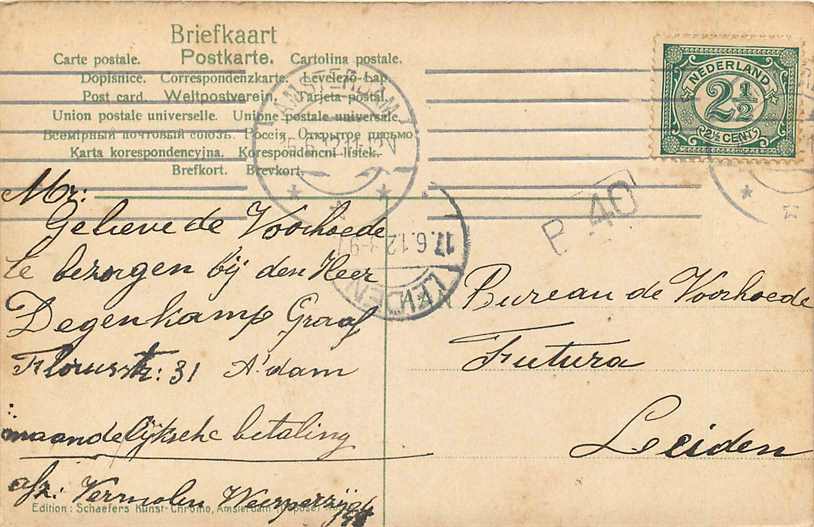 Briefkaart
Carte postale. Postkarte. Cartolina postale.
Dopisnice. Correspondenzkarte. Levelezö-Lap.
Post card. Weltpostverein. Tarjeta postal.
Union postale universelle. Unione postale universale.
Всемірный почтовый союзъ. Россія. Открытое письмо
Karta korespondencyjna. Korespondenční lístek.
Brefkort. Brevkort.
AMSTERDAM
NEDERLAND
2½
2½ CENT
Mr:
Gelieve de Voorhoede
te bezorgen bij den Heer
Degenkamp Graaf
Florisstr: 31 A'dam
maandelijksche betaling
afz: Vermolen Weesperzijde
Edition: Schaefers Kunst-Chromo, Amsterdam
17.6.12
LEIDEN
P. 40
Bureau de Voorhoede
Futura
Leiden